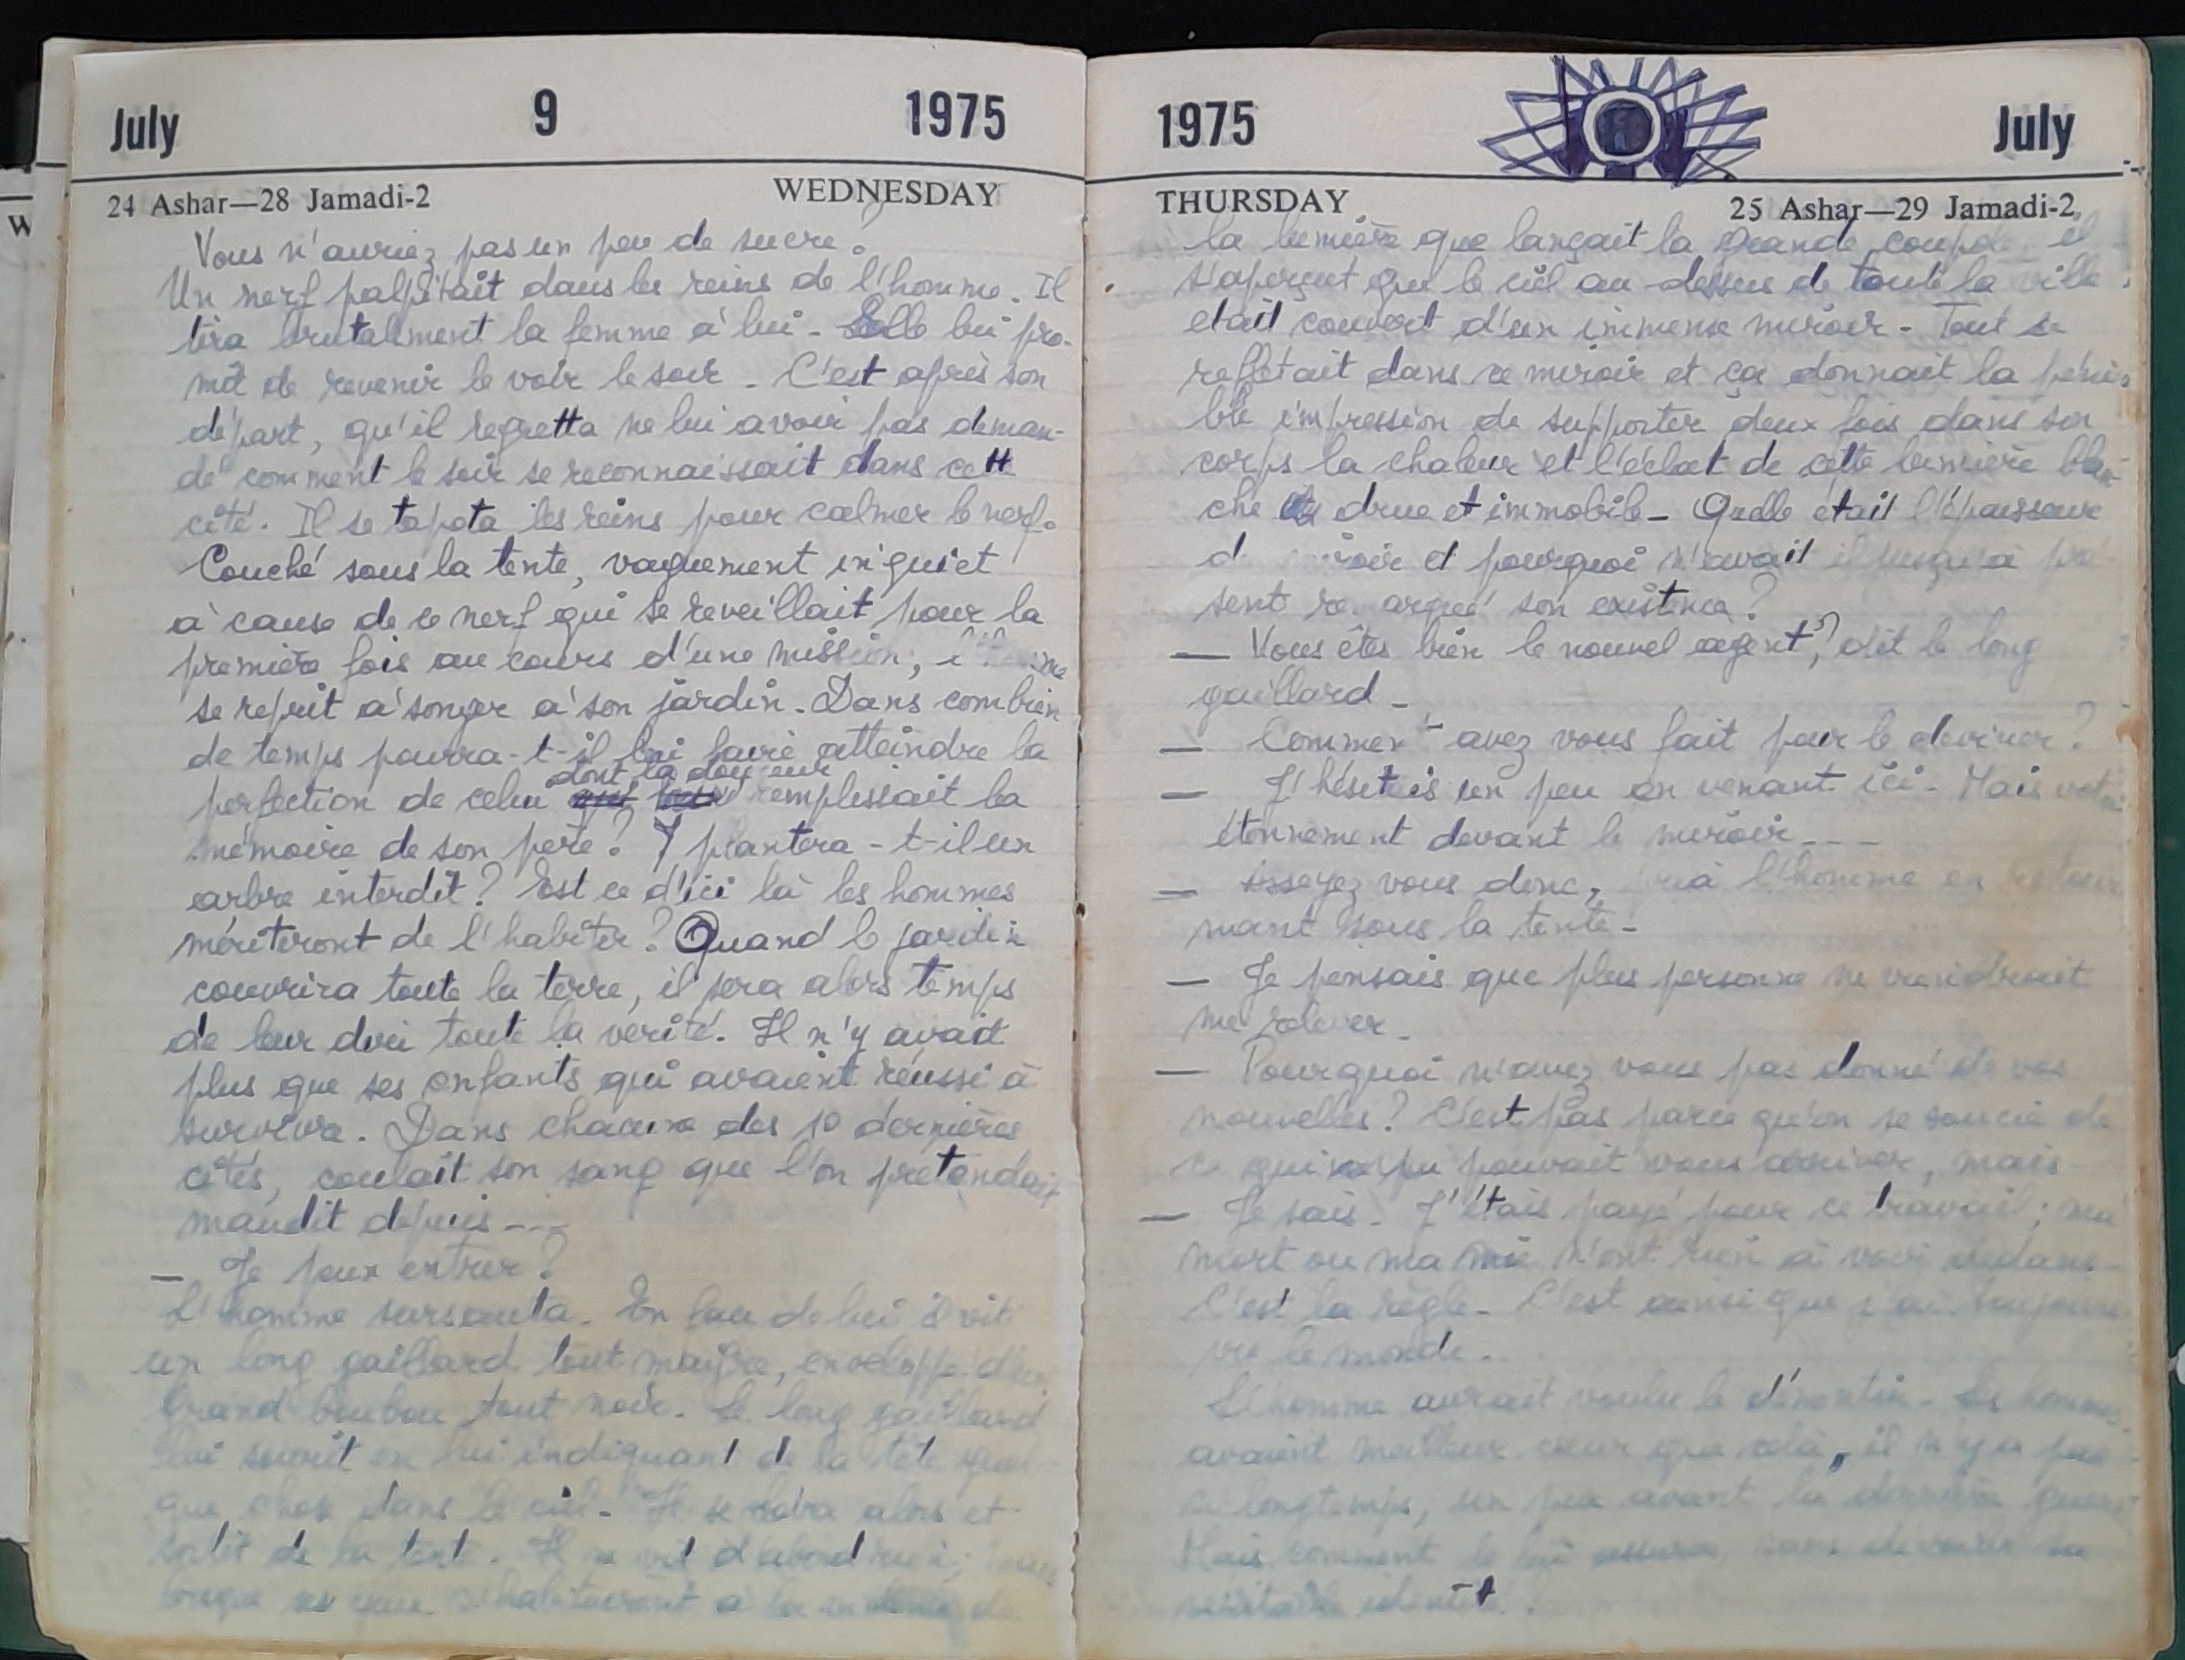 July 9 1975
24 Ashar—28 Jamadi-2 WEDNESDAY
Vous n'auriez pas un peu de sucre ?
Un nerf palpitait dans les reins de l'homme. Il
tira brutalement la femme à lui - Elle lui pro-
mit de revenir le voir le soir - C'est après son
départ, qu'il regretta ne lui avoir pas deman-
dé comment le soir se reconnaissait dans cette
cité. Il se tapota les reins pour calmer le nerf.
Couché sous la tente, vaguement inquiet
à cause de ce nerf qui se reveillait pour la
première fois au cours d'une mission, l'homme
se reprit à songer à son jardin. Dans combien
de temps pourra-t-il lui faire atteindre la
perfection de celui dont la douceur remplissait la
mémoire de son père ? Y plantera-t-il un
arbre interdit ? Est ce d'ici là les hommes
mériteront de l'habiter ? Quand le jardin
couvrira toute la terre, il sera alors temps
de leur dire toute la vérité. Il n'y avait
plus que ses enfants qui avaient réussi à
survivre. Dans chacune des 10 dernières
cités, coulait son sang que l'on prétendait
maudit depuis ---
— Je peux entrer ?
L'homme sursauta. En face de lui il vit
un long gaillard tout maigre, enveloppé d'un
grand boubou tout noir. Le long gaillard
lui sourit en lui indiquant de la tête quel-
que chose dans le ciel. Il se leva alors et
sortit de la tente. Il ne vit d'abord rien;
lorsque ses yeux s'habituèrent à la de
1975 July
THURSDAY 25 Ashar—29 Jamadi-2
la lumière que lançait la grande coupole il
s'aperçut que le ciel au-dessus de toute la ville
etait couvert d'un immense miroir - Tout se
reflétait dans ce miroir et ça donnait la péni-
ble impression de supporter deux fois dans son
corps la chaleur et l'éclat de cette lumière blan-
che drue et immobile - Quelle était l'épaisseur
d miroir et pourquoi n'avait il jusqu'à pré-
sent remarqué son existence ?
— Vous êtes bien le nouvel agent ?, dit le long
gaillard -
— Comment avez vous fait pour le deviner ?
— J'hésitais un peu en venant ici - Mais votre
étonnement devant le miroir ---
— Asseyez vous donc, pria l'homme en retour
nant sous la tente -
— Je pensais que plus personne ne viendrait
me relever -
— Pourquoi n'avez vous pas donné de vos
nouvelles ? C'est pas parce qu'on se soucie de
ce qui pouvait vous arriver, mais -
— Je sais - J'étais payé pour ce travail ; ma
mort ou ma vie n'ont rien à voir dedans -
C'est la règle - C'est ainsi que j'ai toujours
vu le monde -
L'homme aurait voulu le démentir - Les hommes
avaient meilleur cœur que cela, il n'y a pas
si longtemps, un peu avant la dernière guerre
Mais comment le lui assurer sans dévoiler sa
véritable identité ?